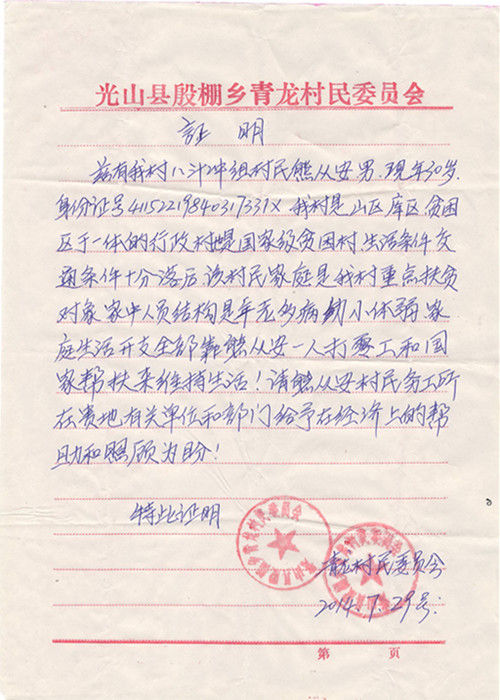 光山县殷棚乡青龙村民委员会
证 明
兹有我村八斗冲组村民熊从安男.现年30岁.
身份证号4152219840317331X 我村是山区库区贫困
区于一体的行政村也是国家级贫困村.生活条件交
通条件十分落后.该村民家庭是我村重点扶贫
对象.家中人员结构是年老多病幼小体弱.家
庭生活开支全部靠熊从安一人打工和国
家帮扶来维持生活！请熊从安村民务工所
在贵地有关单位和部门给予在经济上的帮
助和照顾为盼！
特此证明
青龙村民委员会
2014.7.29号:
第 页